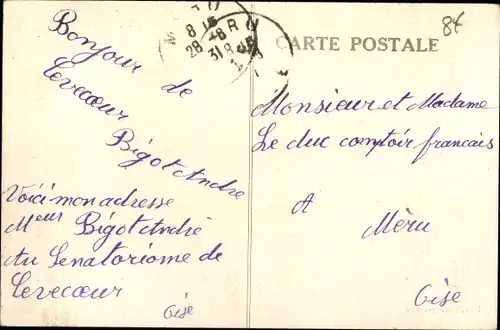 Bonjour de
Levecœur
Bigot Andre
Voici mon adresse
Meur Bigot André
Au Senatoriome de
Levecœur
Oise
8 15
28 -8
31
CARTE POSTALE
8€
Monsieur et Madame
Le duc comptoir francais
A
Méru
Oise